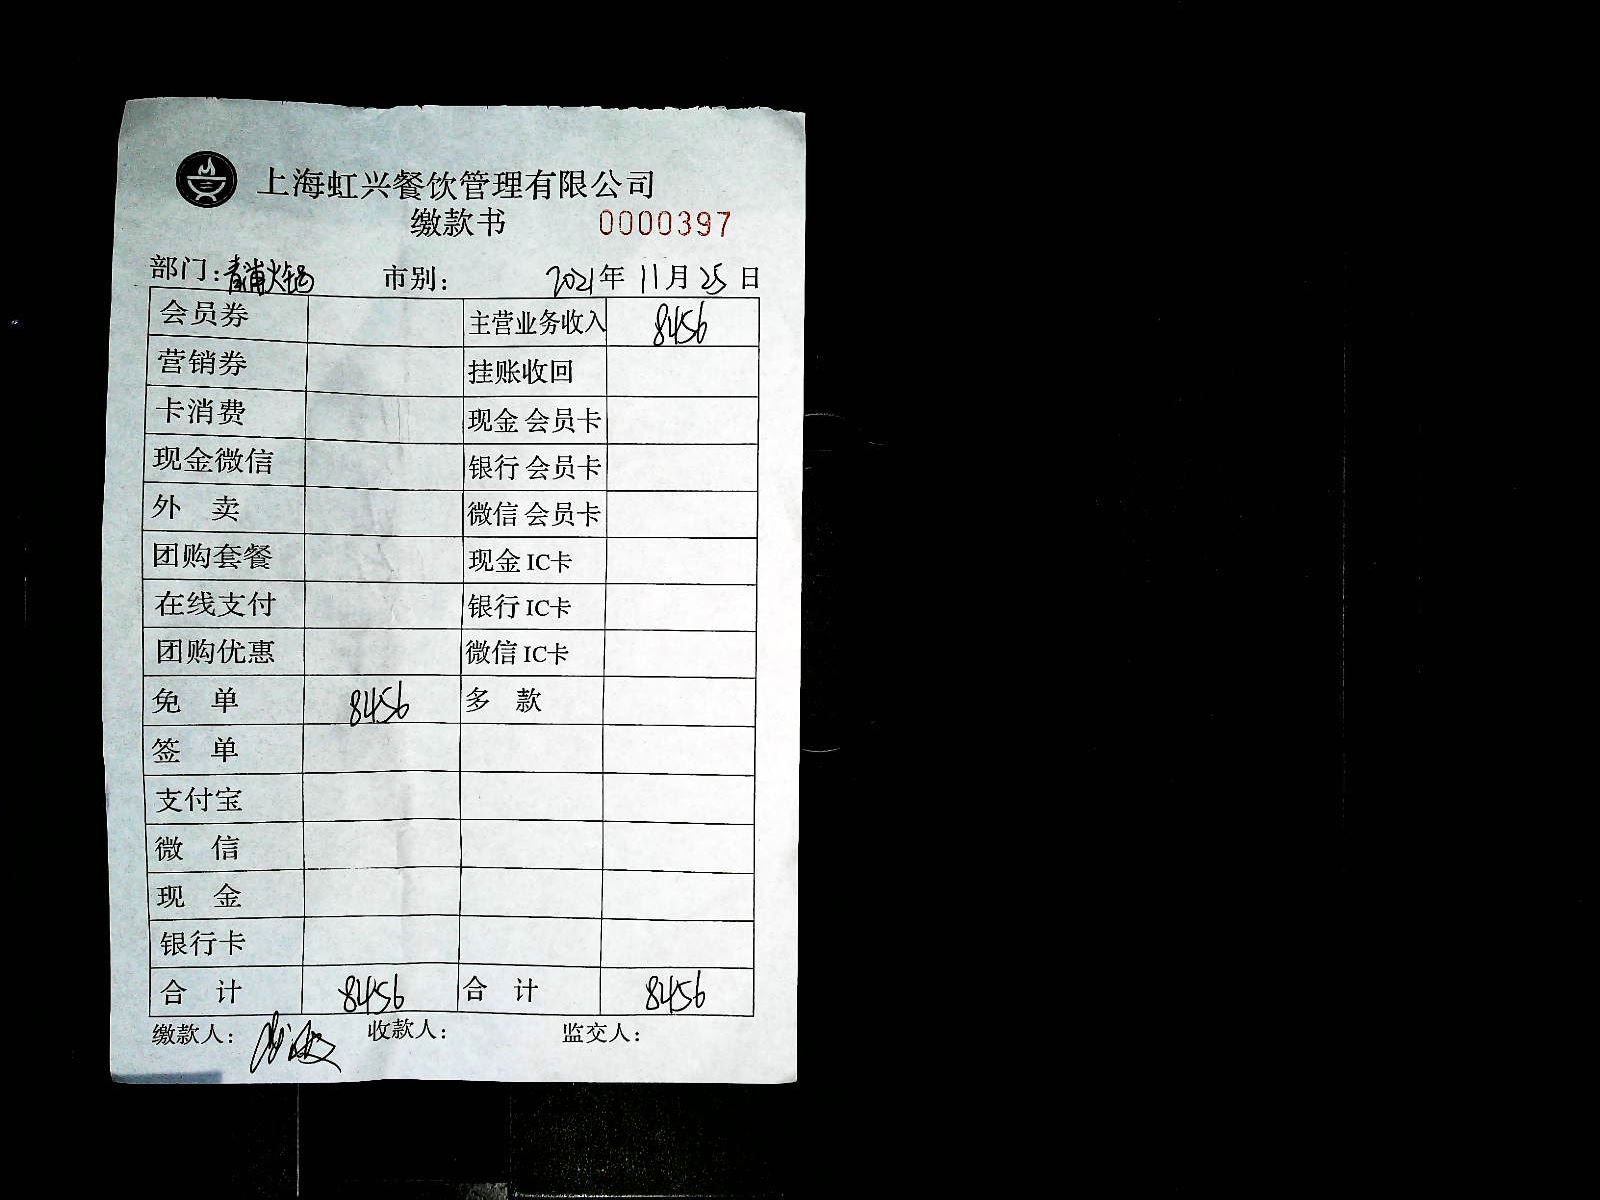 上海虹兴餐饮管理有限公司
缴款书 0000397
部门：青浦火锅 市别： 2021年 11月 25日
会员券 主营业务收入 8456
营销券 挂账收回
卡消费 现金 会员卡
现金微信 银行 会员卡
外 卖 微信 会员卡
团购套餐 现金 IC卡
在线支付 银行 IC卡
团购优惠 微信 IC卡
免 单 8456 多 款
签 单
支付宝
微 信
现 金
银行卡
合 计 8456 合 计 8456
缴款人： 收款人： 监交人：